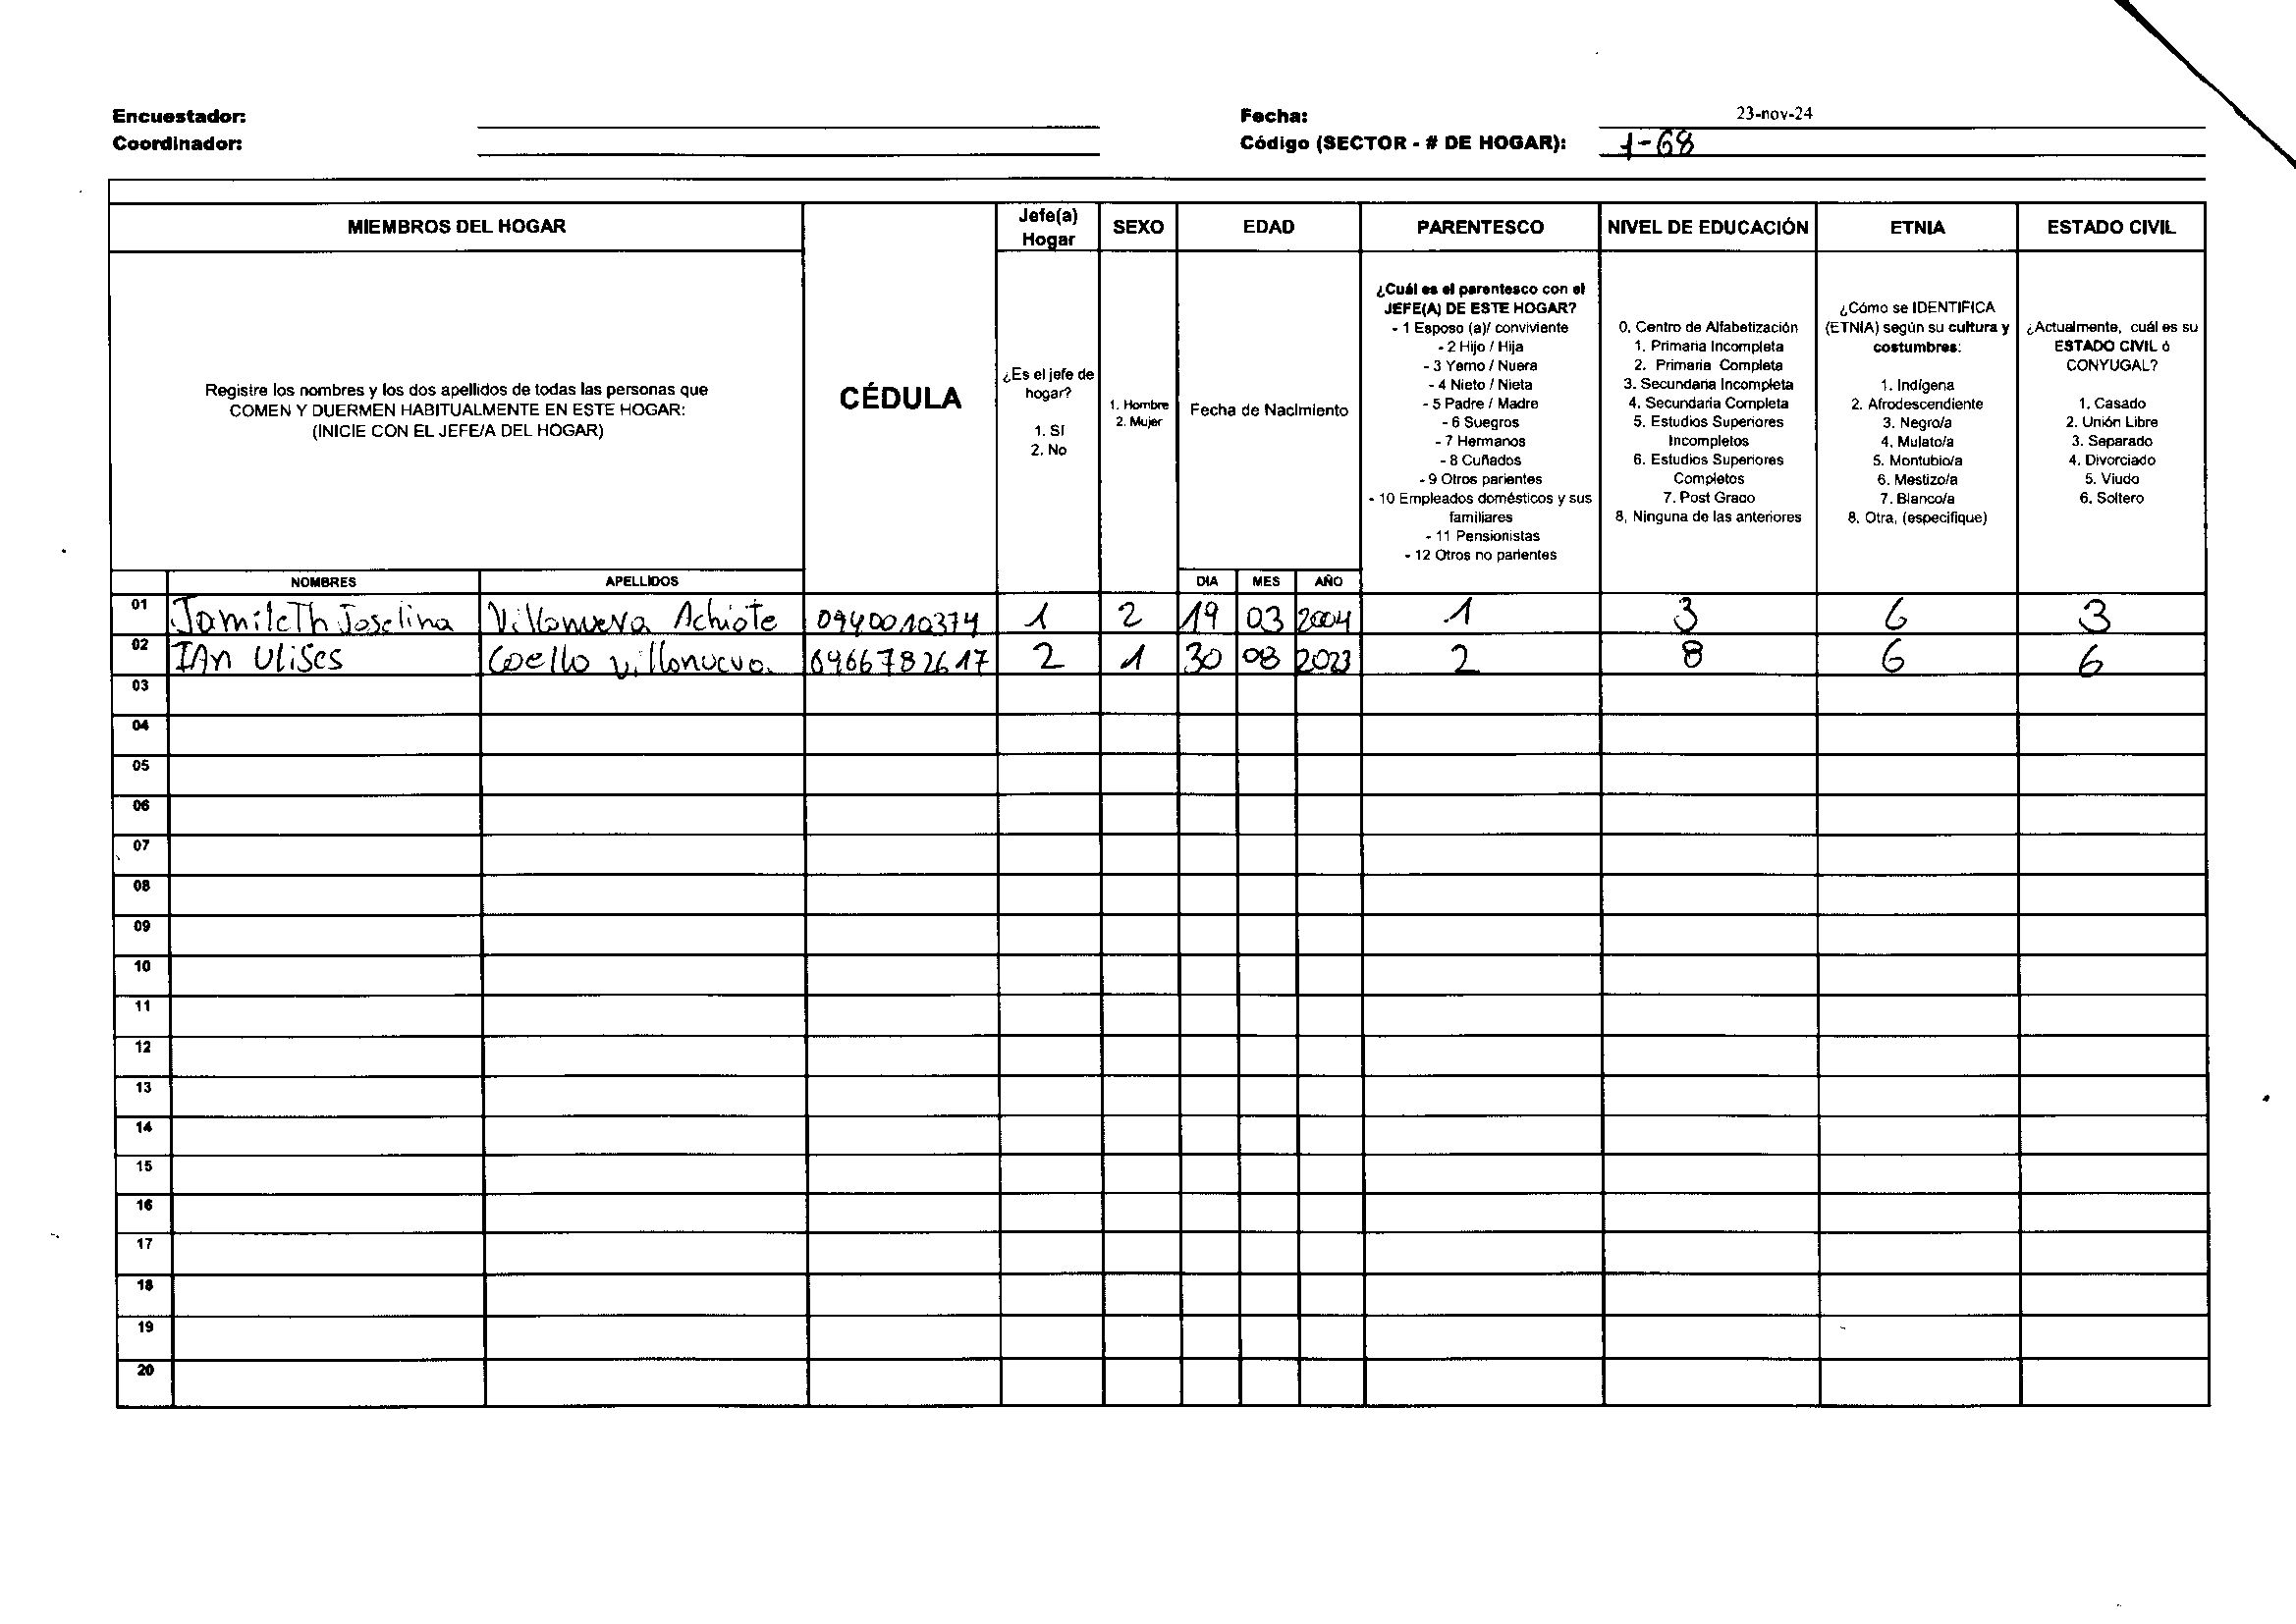 Encuestador:
Coordinador:
Fecha: 23-nov-24
Código (SECTOR - # DE HOGAR): 1-68
MIEMBROS DEL HOGAR
Registre los nombres y los dos apellidos de todas las personas que
COMEN Y DUERMEN HABITUALMENTE EN ESTE HOGAR:
(INICIE CON EL JEFE/A DEL HOGAR)
NOMBRES APELLIDOS
CÉDULA
Jefe(a)
Hogar
¿Es el jefe de
hogar?
1. SI
2. No
SEXO
1. Hombre
2. Mujer
EDAD
Fecha de Nacimiento
DIA MES AÑO
PARENTESCO
¿Cuál es el parentesco con el
JEFE(A) DE ESTE HOGAR?
- 1 Esposo (a)/ conviviente
- 2 Hijo / Hija
- 3 Yerno / Nuera
- 4 Nieto / Nieta
- 5 Padre / Madre
- 6 Suegros
- 7 Hermanos
- 8 Cuñados
- 9 Otros parientes
- 10 Empleados domésticos y sus
familiares
- 11 Pensionistas
- 12 Otros no parientes
NIVEL DE EDUCACIÓN
0. Centro de Alfabetización
1. Primaria Incompleta
2. Primaria Completa
3. Secundaria Incompleta
4. Secundaria Completa
5. Estudios Superiores
Incompletos
6. Estudios Superiores
Completos
7. Post Grado
8, Ninguna de las anteriores
ETNIA
¿Cómo se IDENTIFICA
(ETNIA) según su cultura y
costumbres:
1. Indígena
2. Afrodescendiente
3. Negro/a
4. Mulato/a
5. Montubio/a
6. Mestizo/a
7. Blanco/a
8. Otra, (especifique)
ESTADO CIVIL
¿Actualmente, cuál es su
ESTADO CIVIL ó
CONYUGAL?
1. Casado
2. Unión Libre
3. Separado
4. Divorciado
5. Viudo
6. Soltero
01 Jamileth Joselina Villanueva Achiote 0940010374 1 2 19 03 2004 1 3 6 3
02 IAn Ulises Coello Villanueva. 0966782617 2 1 30 08 2023 2 8 6 6
03
04
05
06
07
08
09
10
11
12
13
14
15
16
17
18
19
20